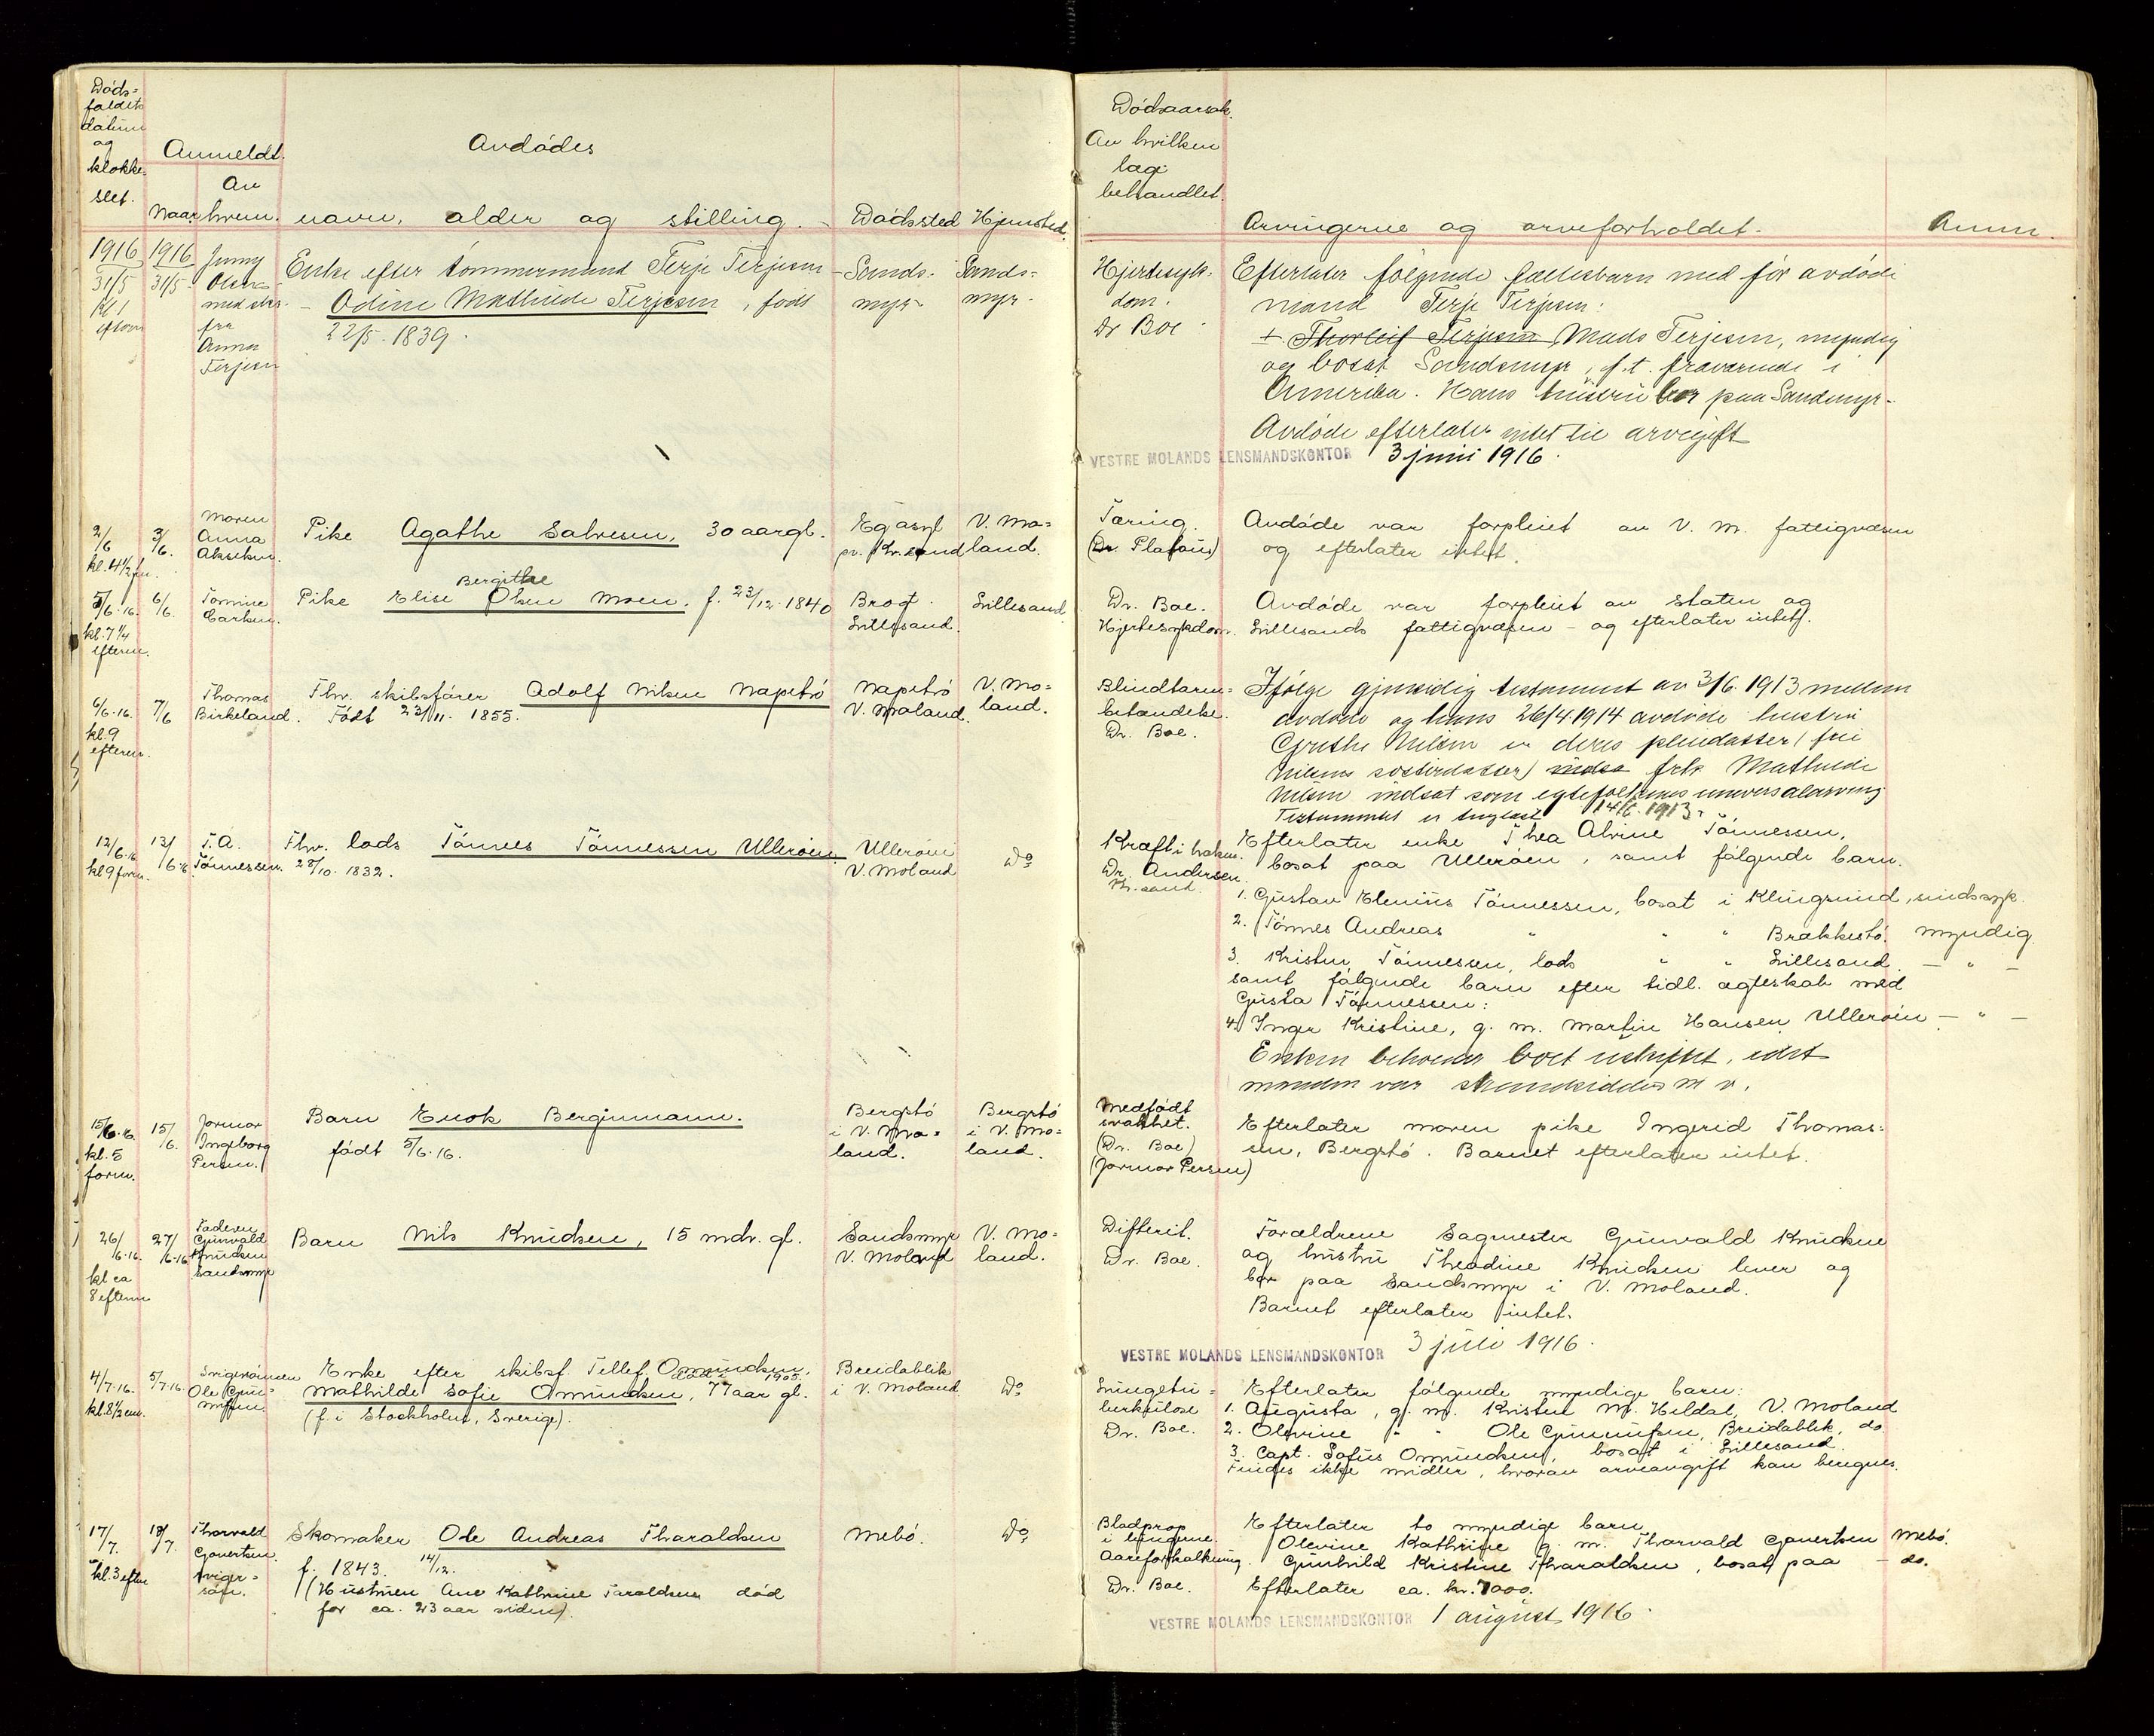 Døds-
faldets
datum
og
klokke-
slet.
Anmeldt.
Naar
Av
hvem.
Avdødes
navn, alder og stilling. -
Dødssted
Hjemsted.
Dødsaarsak.
Av hvilken
læge
behandlet.
Arvingerne og arveforholdet.
Anm.
1916
31/5
Kl 1
efterm
1916
31/5-
Jenny
Olsen
med skr.
fra
Anna
Terjesen
Enke efter tømmermand Terje Terjesen -
- Odine Mathilde Terjesen, født
22/5-1839.
Sands-
myr-
Sands-
myr-
Hjertesyk-
dom.
Dr Boe
Efterlater følgende fællesbarn med før avdøde
mand Terje Terjesen:
1. Thorleif Terjesen Mads Terjesen, myndig
og bosat Sandsmyr, f.t. fraværende i
Amerika. Hans hustru bor paa Sandsmyr-
Avdøde efterlater intet til arvegift
VESTRE MOLANDS LENSMANDSKONTOR 3 juni 1916.
2/6
kl. 4 1/2 fm.
3/6.
Maren
Anna
Akselsen.
Pike Agathe Salvesen, 30 aar gl.
Eg asyl
pr. Kr.sand
V. Mo-
land.
Tæring.
(Dr. Platous)
Avdøde var forpleiet av V. M. fattigvæsen
og efterlater intet.
5/6-16.
kl. 7 1/4
efterm.
6/6
Tomine
Carlsen.
Bergithe
Pike Elise Olsen Moen. f. 23/12-1840
Brog.
Lillesand.
Lillesand
Dr. Boe.
Hjertesykdom.
Avdøde var forpleiet av staten og
Lillesands fattigvæsen - og efterlater intet.
6/6-16.
kl. 9
efterm.
7/6
Thomas
Birkeland.
Fhv. skibsfører Adolf Nilsen Napetrø
Født 23/11. 1855.
Napetrø
V. Moland.
V. Mo-
land.
Blindtarm-
betændelse.
Dr. Boe.
Ifølge gjensidig testament av 3/6. 1913 mellem
avdøde og hans 26/4 1914 avdøde hustru
Grethe Nilsen er deres pleiedatter (fru
Nilsens søsterdatter) frk. Mathilde
Nilsen indsat som egtefolkenes universalarving
Testamentet er tinglæst 14/6. 1913.
12/6.16
kl 9 form.
13/6.16
T. A.
Tønnessen.
Fhv. lods Tønnes Tønnessen Ulleröen.
28/10. 1832.
Ulleröen
V. Moland
Do
Kræft i halsen.
Dr. Andersen.
Kr.sand.
Efterlater enke Thea Alvine Tønnessen,
bosat paa Ulleröen, samt følgende barn.
1. Gustav Elenius Tønnessen, bosat i Klingsund, sindssyk.
2. Tønnes Andreas " " " Brækkestø. myndig.
3. Kristen Tønnessen, lods " " Lillesand. - " -
samt følgende barn efter tidl. ægteskab med
Gusta Tønnessen:
4. Inger Kristine, g. m. Martin Hansen Ulleröen - " -
Enken beholder boet uskiftet, idet
15/6.16.
kl. 5
form.
15/6.
Jormor
Ingeborg
Persen.
Barn Enok Bergmann.
født 5/6-16.
Bergstø
i V. Mo-
land.
Bergstø
i V. Mo-
land.
Medfødt
svakhet.
(Dr. Boe)
(Jormor Persen)
Efterlater moren pike Ingerid Thomas-
sen, Bergstø. Barnet efterlater intet.
26/6-16.
kl ca
8 efterm
27/6-16
Faderen
Gunvald
Knudsen
Sandsmyr
Barn Nils Knudsen, 15 mdr. gl.
Sandsmyr
V. Moland
V. Mo-
land.
Difterit.
Dr. Boe.
Forældrene Sagmester Gunvald Knudsen
og hustru Theodine Knudsen lever og
bor paa Sandsmyr i V. Moland.
Barnet efterlater intet.
VESTRE MOLANDS LENSMANDSKONTOR 3 juli 1916.
4/7-16.
kl. 8 1/2 em.
5/7-16.
Svigersønnen
Ole Gun-
Enke efter skibsf. Tellef Omundsen,
1905.
Mathilde Sofie Omundsen, 77 aar gl.
(f. i Stockholm, Sverige).
Breidablik
i V. Moland
Do
Lungetu-
berkulose
Dr. Boe.
Efterlater følgende myndige barn:
1. Augusta, g. m. Kristen M. Heldal, V. Moland
2. Olevine " " Ole Gunnufsen, Breidablik, do
3. Capt. Sofus Omundsen, bosat i Lillesand.
Findes ikke midler, hvorav arveavgift kan beregnes.
17/7.
kl. 3 efter
18/7.
Thorvald
Gauertsen
sviger-
søn.
Skomaker Ole Andreas Tharaldsen
f. 1843. 14/12.
(Hustruen Ane Kathrine Taraldsen død
for ca. 23 aar siden).
Mebø.
Do
Blodprop
i lungene.
Aareforkalkning.
Dr. Boe.
Efterlater to myndige barn
Olevine Kathrine g. m. Thorvald Gauertsen Mebø.
Gunhild Kristine Tharaldsen, bosat paa - do.
Efterlater ca. kr. 7000.
VESTRE MOLANDS LENSMANDSKONTOR 1 august 1916.